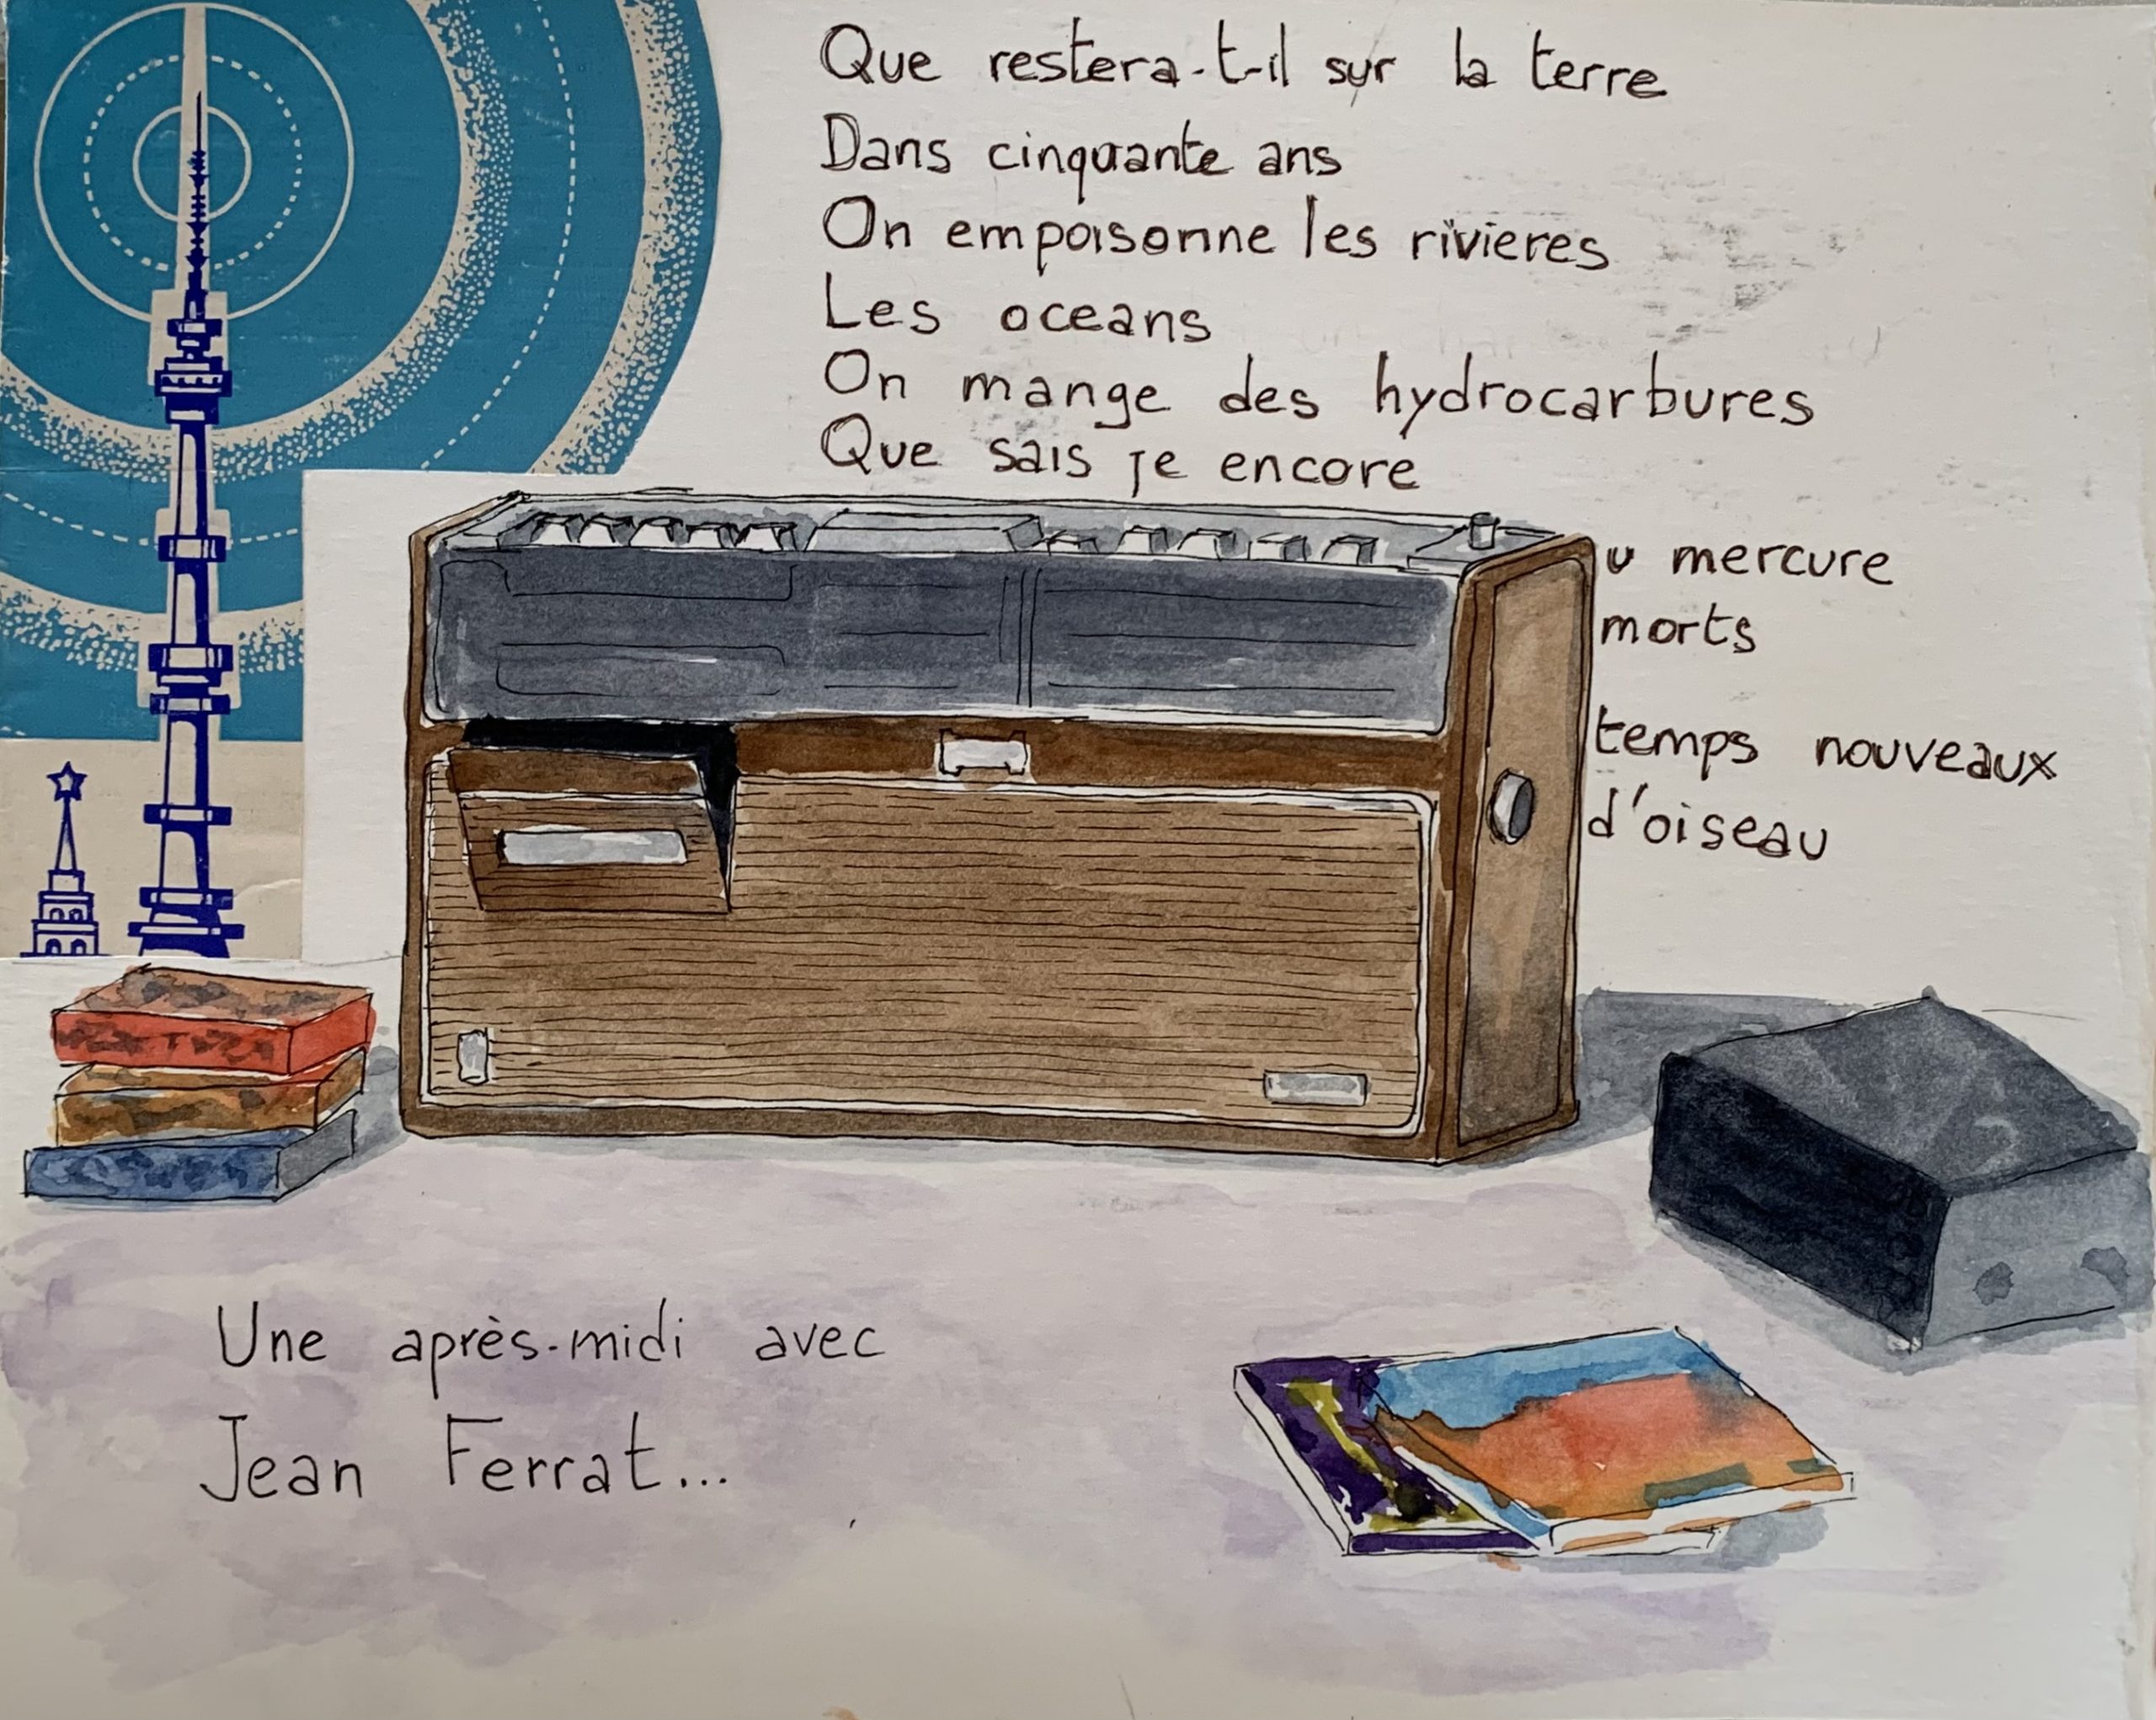 Que restera-t-il sur la terre
Dans cinquante ans
On empoisonne les rivieres
Les oceans
On mange des hydrocarbures
Que sais je encore
u mercure
morts
temps nouveaux
d'oiseau
Une après-midi avec
Jean Ferrat...